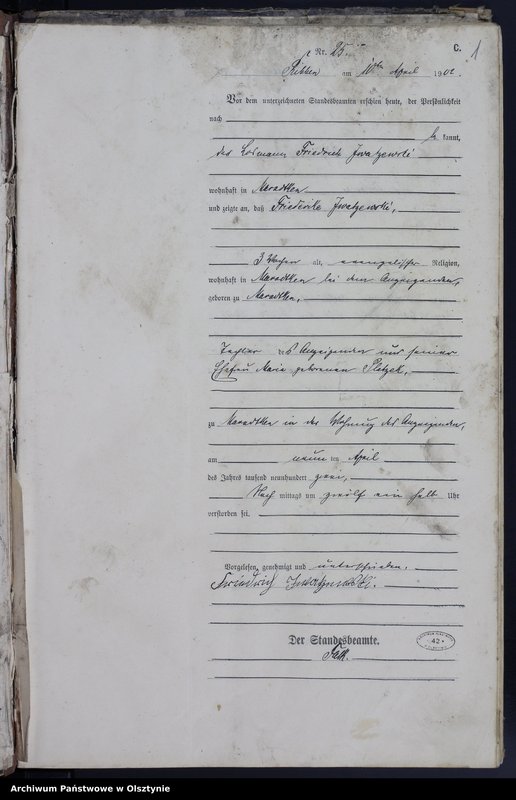 C. 1
Nr. 25.
Ribben am 10ten April 1902.
Vor dem unterzeichneten Standesbeamten erschien heute, der Persönlichkeit
nach
kannt,
der Losmann Friedrich Iwatzewski
wohnhaft in Maradtken
und zeigte an, daß Friederike Iwatzewski,
3 Wochen alt, evangelischer Religion,
wohnhaft in Maradtken bei dem Anzeigenden,
geboren zu Maradtken,
Tochter des Anzeigenden und seiner
Ehefrau Marie geborenen
zu Maradtken in der Wohnung des Anzeigenden,
am neunten April
des Jahres tausend neunhundert zwei,
Nach mittags um zwölf ein halb Uhr
verstorben sei.
Vorgelesen, genehmigt und unterschrieben.
Friedrich Iwatzewski.
Der Standesbeamte.
42
Archiwum Państwowe w Olsztynie